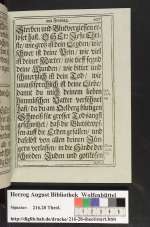 am Freytag. 127
Sterben und Blutvergiessen er-
löset hast. O HErr Jesu Chri-
ste, wie groß ist dein Leyden; wie
schwer ist deine Pein; wie viel
ist deiner Marter; wie tieff seynd
deine Wunden; wie bitter und
schmertzlich ist dein Tod; wie
unaussprechlich ist deine Liebe,
damit du mich deinem lieben
himmlischen Vatter versöhnet
hast, da du am Oelberg blutigen
Schweiß für grosser Todsangst
geschwitzet, daß die Blutstropf-
fen auff die Erden gefallen; und
daselbst von allen deinen Jün-
gern verlassen; in die Hände der
schnöden Juden und gottlosen
Herzog August Bibliothek Wolfenbüttel
Signatur: 216.28 Theol.
http://diglib.hab.de/drucke/216-28-theol/start.htm